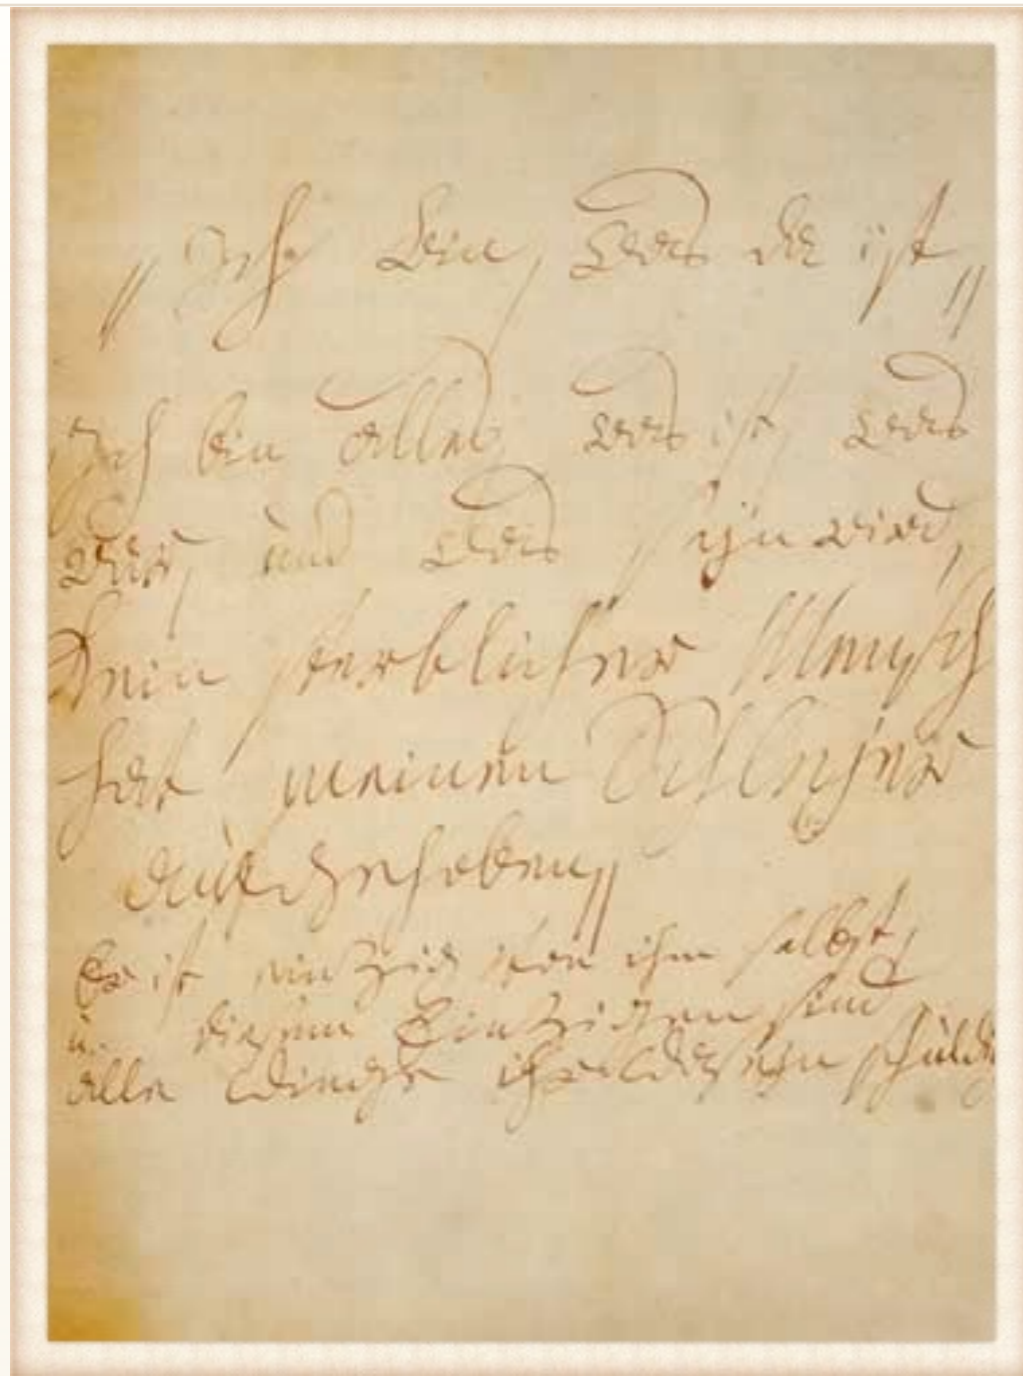 „ Ich bin, was da ist „
Ich bin alles, was ist, was
war, und was seyn wird,
kein sterblicher Mensch
hat meinen Schleyer
aufgehoben „
Er ist einzig von ihm selbst,
u. diesem Einzigen sind
alle Dinge ihr Daseyn schuldig